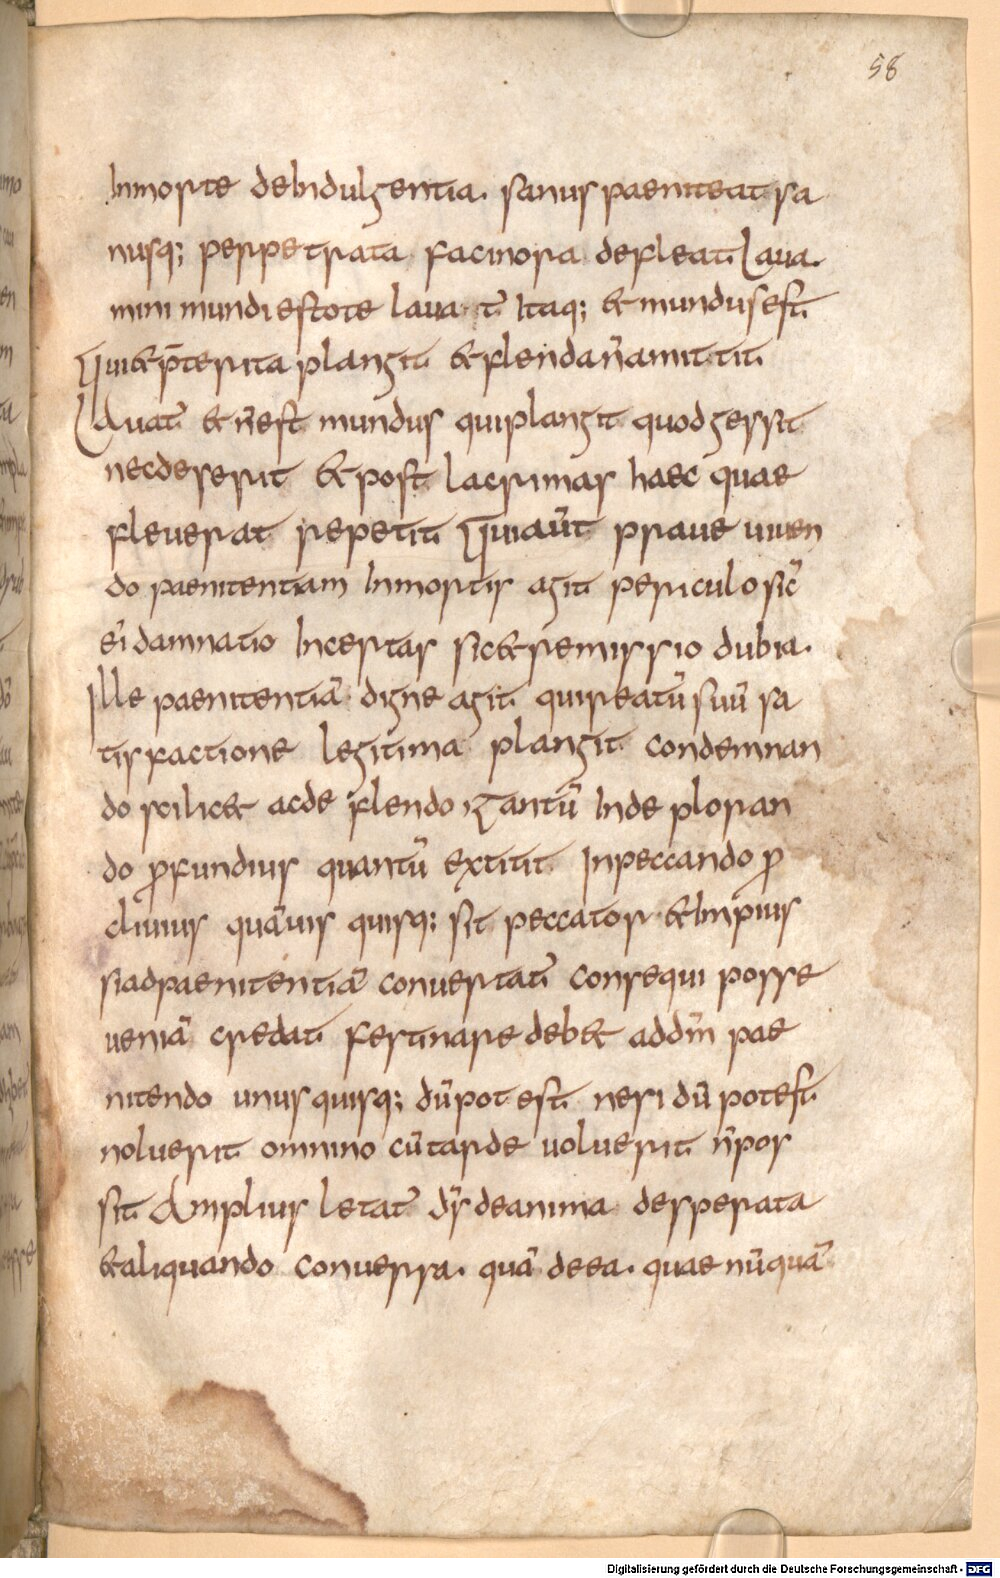 58
Inmorte deIndulgentia. sanus paeniteat sa
nusq; perpetrata facinora defleat Laua
mini mundi estote lauat̄ Itaq; & mundus est
Qui & p̄terita plangit & flenda n̄ amittit
Lauat̄ & n̄ est mundus qui plangit quod gessit
nec deserit & post lacrimas haec quae
fleuerat repetit Qui aūt praue uiuen
do paenitentiam Inmortis agit periculo sic̄
ei damnatio Incertas sic & remissio dubia.
Ille paenitentiā digne agit qui reatū suū sa
tisfactione legitima plangit condemnan
do scilic& ac de flendo Tantū Inde ploran
do ꝓfundius quantū extitit Inpeccando ꝓ
cliuius quāuis quisq; sit peccator & Imp̄ius
si ad paenitentiā conuertat̄ consequi posse
ueniā credat festinare deb& ad dm̄ pae
nitendo unusquisq; dū potest ne si dū potest
noluerit omnino cū tarde uoluerit n̄ pos
sit Amplius letat̄ ds̄ de anima desperata
& aliquando conuersa. quā de ea. quae nūquā
Digitalisierung gefördert durch die Deutsche Forschungsgemeinschaft - DFG